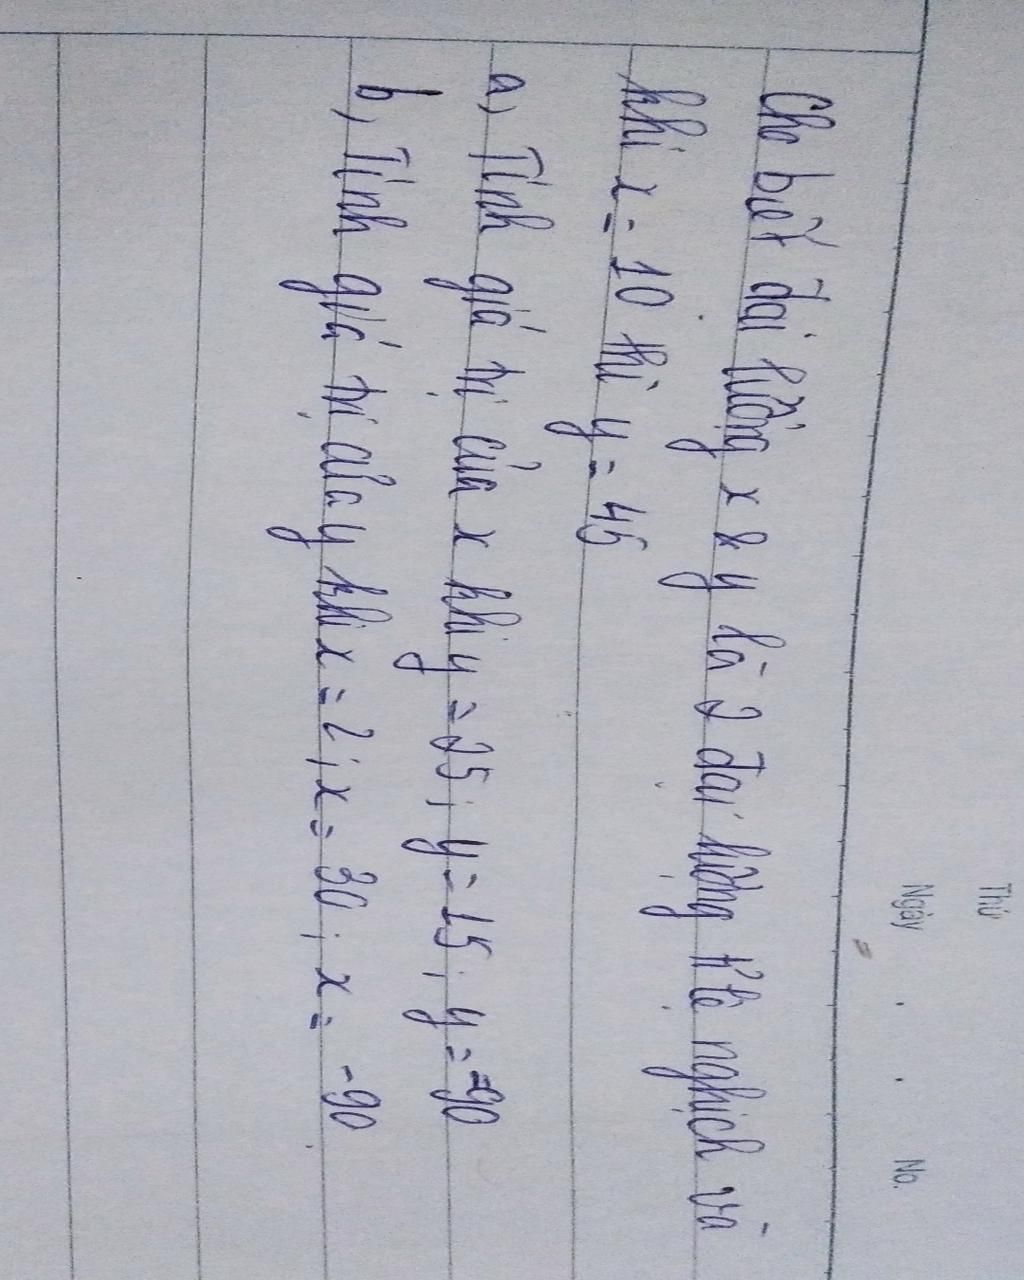 Thứ
Ngày . . No.
Cho biết đại lượng x & y là 2 đại lượng tỉ lệ nghịch và
khi x = 10 thì y = 45
a, Tính giá trị của x khi y = 25 ; y = 15 ; y = -90
b, Tính giá trị của y khi x = 2 ; x = 30 ; x = -90